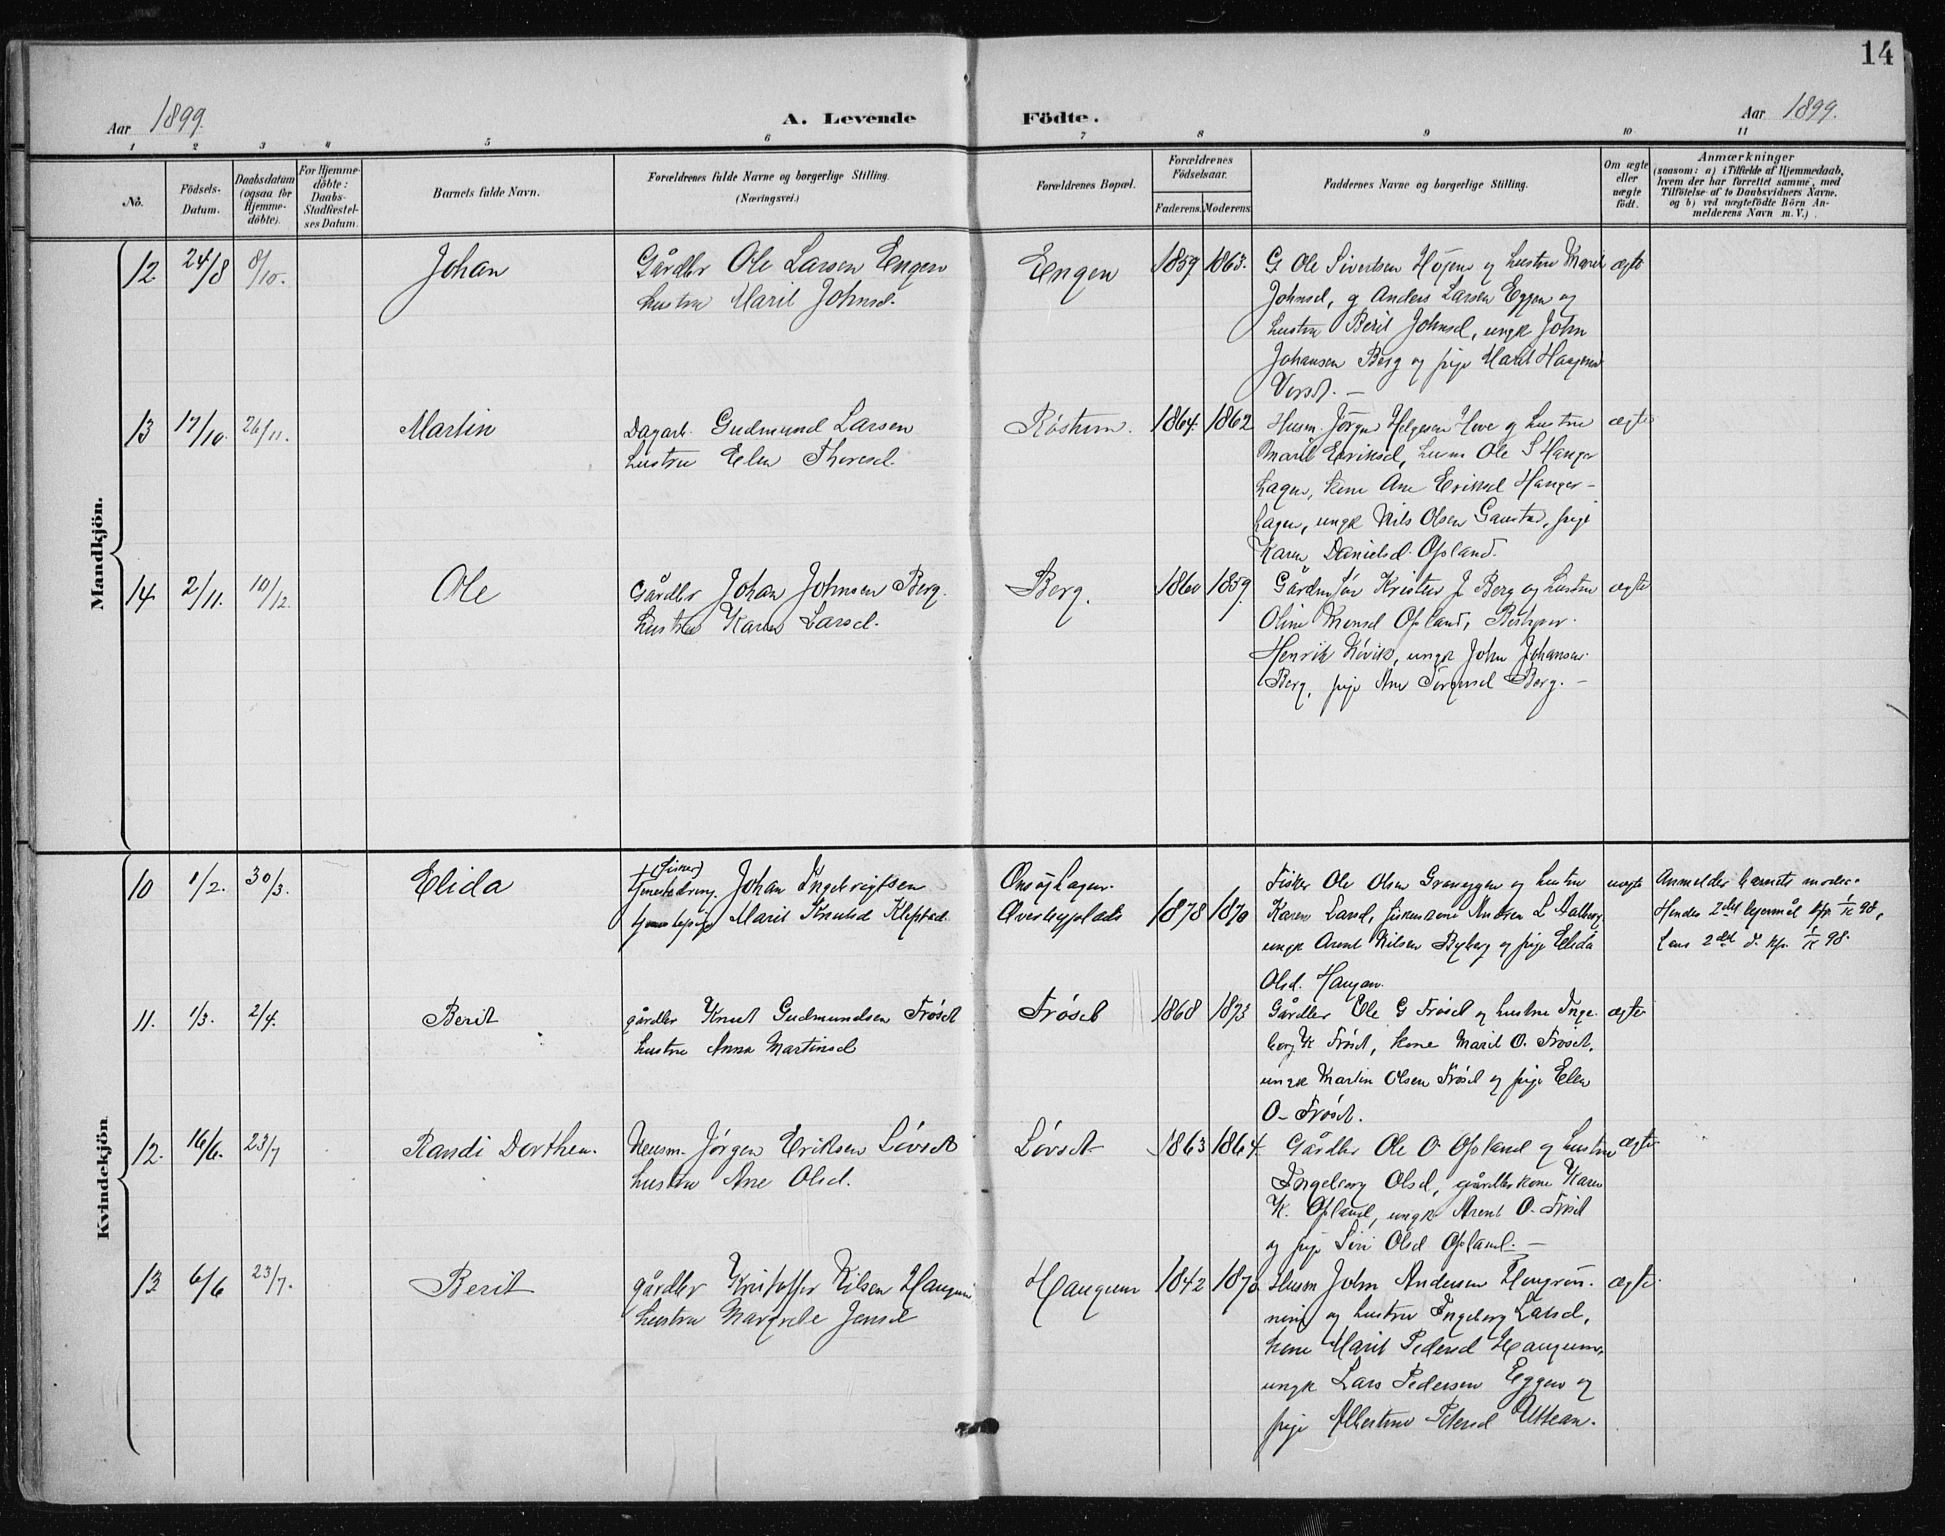 14
Aar 1899. A. Levende Födte. Aar 1899.
1 2 3 4 5 6 7 8 9 10 11
No.
Födsels-Datum.
Daabsdatum (ogsaa for Hjemme-döbte).
For Hjemme-döbte: Daabs-Stadfæstel-ses Datum.
Barnets fulde Navn.
Forældrenes fulde Navne og borgerlige Stilling.
(Næringsvei.)
Forældrenes Bopæl.
Forældrenes Födselsaar.
Faderens. Moderens.
Faddernes Navne og borgerlige Stilling.
Om ægte eller uægte födt.
Anmærkninger
(saasom: a) i Tilfælde af Hjemmedaab,
hvem der har forrettet samme, med
Tilföielse af to Daabsvidners Navne.
og b) ved uægtefödte Börn An-
melderens Navn m. V.)
Mandkjön.
12 24/8 8/10. Johan Gårdbr Ole Larsen Engen Engen 1859 1863. G Ole Sivertsen Højem og hustru Marit ægte
hustru Marit Johnsd. Johnsd, g Anders Larsen Eggen og
hustru Berit Johnsd, ungk John
Johansen Berg og pige Marit Haagensd
13 17/10. 26/11. Martin Dagarb. Gudmund Larsen 1864. 1862 Husm. Jörgen Helgesen Hove og hustru ægte
hustru Elen Thoresd. Marit Eriksd, husm Ole S Hanger
hagen, kone Ane Eriksd Hanger-
hagen, ungk Nils Olsen Gaustad, pige
Karen Danielsd. Opland.
14 2/11. 10/12. Ole Gårdbr Johan Johnsen Berg. Berg. 1860 1859. Gårdm søn Krister J Berg og hustru ægte
hustru Karen Larsd. Oline Monsd Opland,
Henrik Høvik, ungk John Johansen
Berg, pige Ane Jörgensd Berg. –
Kvindekjön
10 1/2. 30/3. Elida (fisker) Johan Ingebrigtsen Fisker Ole Olsen og hustru uægte Anmelder barnets moder.
Marit Knutsd Klepstad. 1878 1870 Karen Sand, Hendes 2det lejermål kfr. 98,
ungk Arent Nilsen Ryberg og pige Elida hans 2det d. kfr. 98.
Olsd. Haugan.
11. 1/3. 2/4. Berit gårdbr Knut Gudmundsen Frøset Frøset 1868 1873 Gårdbr Ole G Frøset og hustru Inge- ægte
hustru Anna Martinsd borg K Frøset, kone Marit O. Frøset,
ungk Martin Olsen Frøset og pige Elen
O. Frøset.
12. 16/6. 23/7 Randi Dorthea. Husm. Jørgen Eriksen Løvset Løvset 1863 1864. Gårdbr Ole O. Opland og hustru ægte
hustru Ane Olsd. Ingeborg Olsd, gårdbrkone Karen
K. Opland, ungk. Arent O. Frøset
og pige Siri Olsd Opland. –
13 6/6 23/7. Berit gårdbr Kristoffer Nilsen Haugum Haugum 1842 1870 Husm John Andersen
hustru Margrete Jensd og hustru Ingeborg Larsd, ægte.
kone Marit Pedersd Haugum,
ungk Lars Pedersen Eggen og
pige Albertine Petersd